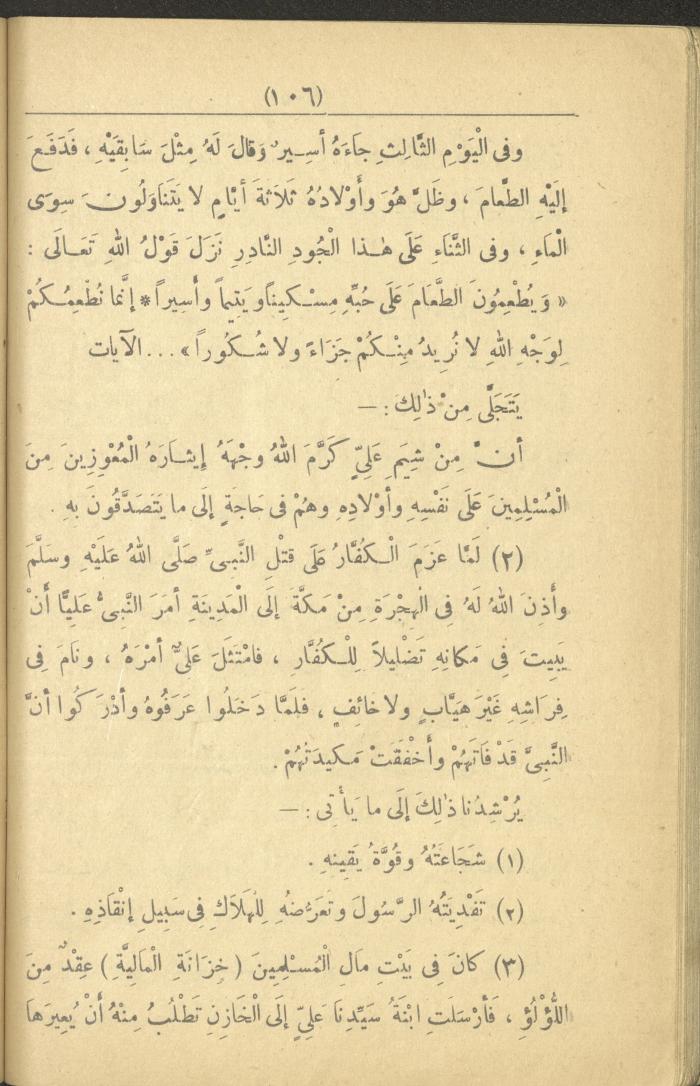 (١٠٦)
وفى الْيَوْمِ الثَّالِثِ جاءَهُ أسِيرٌ وَقالَ لَهُ مِثْلَ سَابِقَيْهِ ، فَدَفَعَ
إلَيْهِ الطَّعامَ ، وظَلَّ هُوَ وأَوْلادُهُ ثَلاثَةَ أيَّامٍ لا يَتَناوَلُونَ سِوَى
الْماءِ ، وفى الثَّنَاءِ عَلَى هٰذا الْجُودِ النَّادِرِ نَزَلَ قَوْلُ اللهِ تَعَالَى :
« وَيُطْعِمُونَ الطَّعَامَ عَلَى حُبِّهِ مِسْكِيناً وَيَتِيماً وأَسِيراً * إنَّما نُطْعِمُكُمْ
لِوَجْهِ اللهِ لا نُرِيدُ مِنْكُمْ جَزَاءً ولا شُكُوراً » ... الآيات
يَتَجَلَّى مِنْ ذٰلِكَ : —
أنَّ مِنْ شِيَمِ عَلِيٍّ كَرَّمَ اللهُ وجْهَهُ إيثَارَهُ الْمُعْوِزِينَ مِنَ
الْمُسْلِمِينَ عَلَى نَفْسِهِ وأوْلادِهِ وهُمْ فى حَاجَةٍ إلَى ما يَتَصَدَّقُونَ بِهِ .
(٢) لَمَّا عَزَمَ الْكُفَّارُ عَلَى قتْلِ النَّبِىِّ صَلَّى اللهُ عَلَيْهِ وسَلَّمَ
وأَذِنَ اللهُ لَهُ فِى الْهِجْرَةِ مِنْ مَكَّةَ إلَى الْمَدِينَةِ أمَرَ النَّبِىُّ عَلِيًّا أَنْ
يَبِيتَ فِى مَكانِهِ تَضْلِيلاً لِلْكُفَّارِ ، فامْتَثَلَ عَلِىٌّ أمْرَهُ ، ونَامَ فِى
فِرَاشِهِ غَيْرَ هَيَّابٍ ولا خائفٍ ، فَلَمَّا دَخَلُوا عَرَفُوهُ وأدْرَكُوا أنَّ
النَّبِىَّ قَدْ فَاتَهُمْ وأَخْفَقَتْ مَكِيدَتُهُمْ .
يُرْشِدُنا ذٰلِكَ إلَى ما يَأْتِى : —
(١) شَجَاعَتُهُ وقُوَّةُ يَقِينِهِ .
(٢) تَفْدِيَتُهُ الرَّسُولَ وتَعَرُّضُهُ لِلْهَلاَكِ فِى سَبِيلِ إنْقَاذِهِ .
(٣) كانَ فِى بَيْتِ مالِ الْمُسْلِمِينَ (خِزَانَةِ الْمالِيَّةِ) عِقْدٌ مِنَ
اللُّؤْلُؤِ ، فَأرْسَلَتِ ابْنَةُ سَيِّدِنَا عَلِيٍّ إلَى الْخَازِنِ تَطْلُبُ مِنْهُ أَنْ يُعِيرَهَا